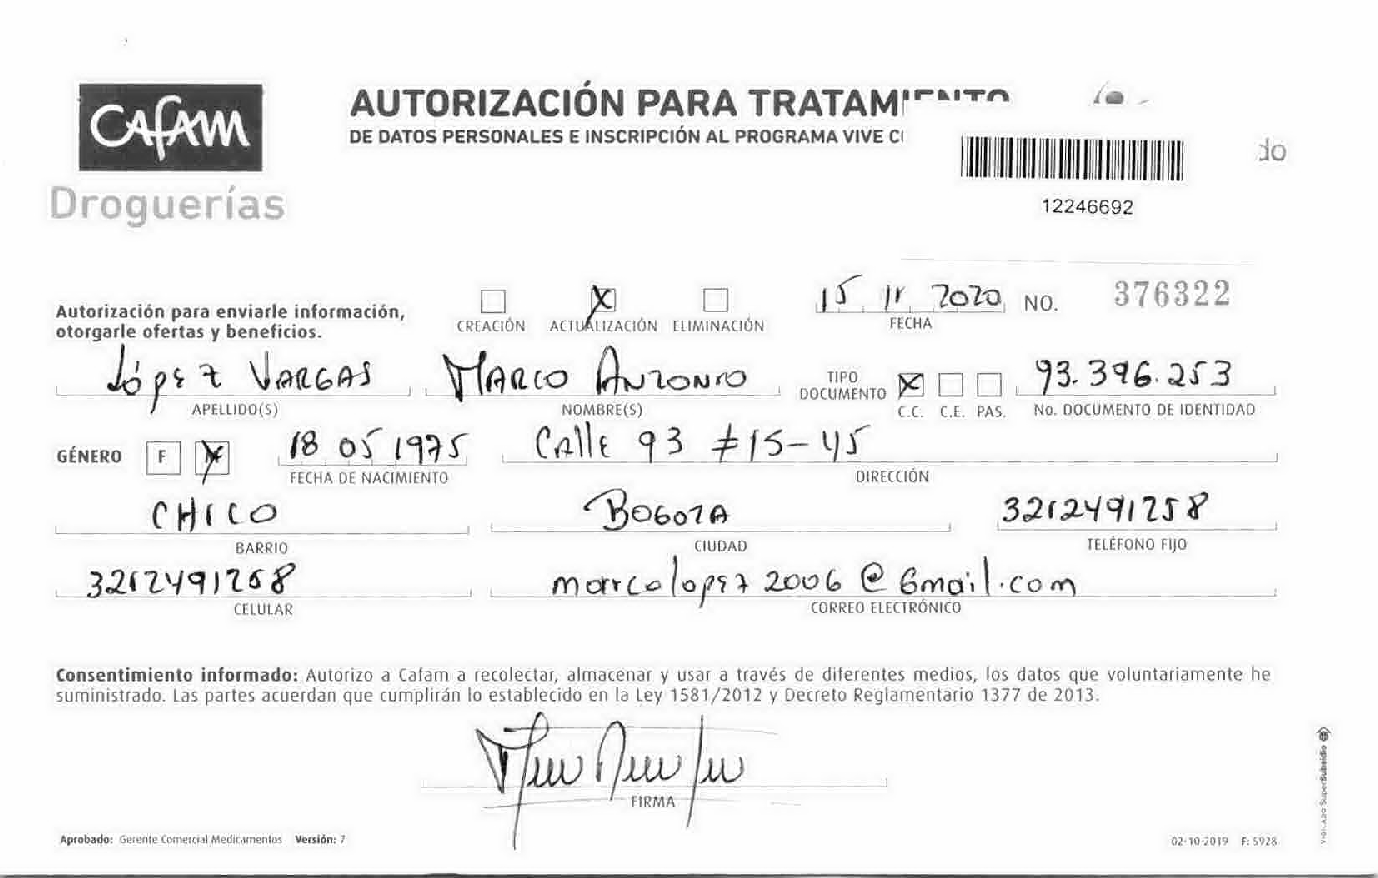 CAFAM
Droguerías
AUTORIZACIÓN PARA TRATAMIENTO
DE DATOS PERSONALES E INSCRIPCIÓN AL PROGRAMA VIVE
do
12246692
Autorización para enviarle información,
otorgarle ofertas y beneficios.
CREACIÓN X ACTUALIZACIÓN ELIMINACIÓN
15 11 2020 NO. 376322
FECHA
López VARGAS MARCO ANTONIO TIPO DOCUMENTO X 93.396.253
APELLIDO(S) NOMBRE(S) C.C. C.E. PAS. No. DOCUMENTO DE IDENTIDAD
GÉNERO F X 18 05 1975 CAllE 93 #15-45
FECHA DE NACIMIENTO DIRECCIÓN
CHICO BOGOTA 3212491258
BARRIO CIUDAD TELÉFONO FIJO
3212491258 marcolopez2006@Gmail.com
CELULAR CORREO ELECTRÓNICO
Consentimiento informado: Autorizo a Cafam a recolectar, almacenar y usar a través de diferentes medios, los datos que voluntariamente he
suministrado. Las partes acuerdan que cumplirán lo establecido en la Ley 1581/2012 y Decreto Reglamentario 1377 de 2013.
FIRMA
Aprobado: Gerente Comercial Medicamentos Versión: 7
02-10-2019 F: 5928
VIGILADO SuperSubsidio